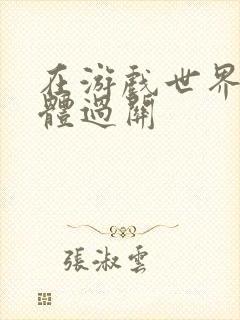 在游戏世界
體過關
張淑雲